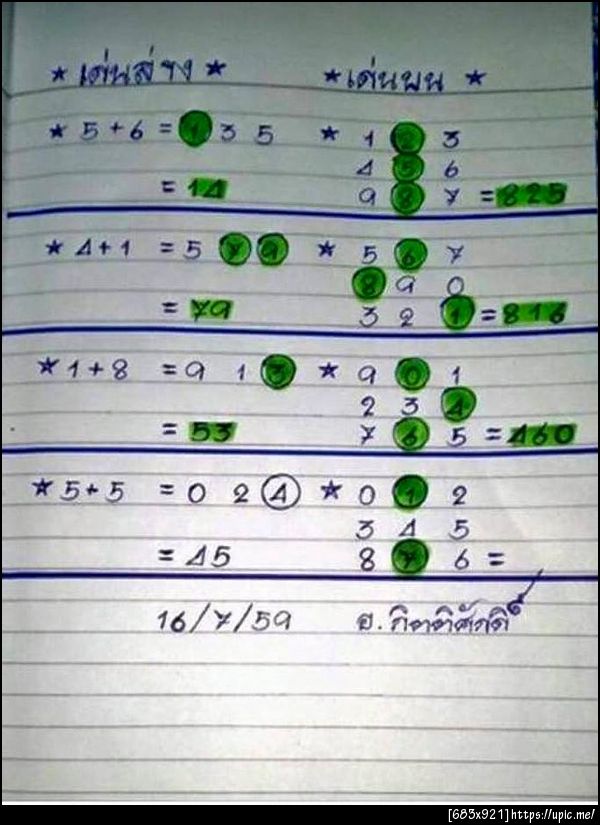 ★ เด่นล่าง ★ ★ เด่นบน ★
★ 5+6 = 1 3 5 ★ 1 2 3
4 5 6
= 14 9 8 7 = 825
★ 4+1 = 5 7 9 ★ 5 6 7
8 9 0
= 79 3 2 1 = 816
★ 1+8 = 9 1 3 ★ 9 0 1
2 3 4
= 53 7 6 5 = 460
★ 5+5 = 0 2 4 ★ 0 1 2
3 4 5
= 45 8 7 6 =
16/7/59 อ. กิตติศักดิ์
[683x921]https://upic.me/